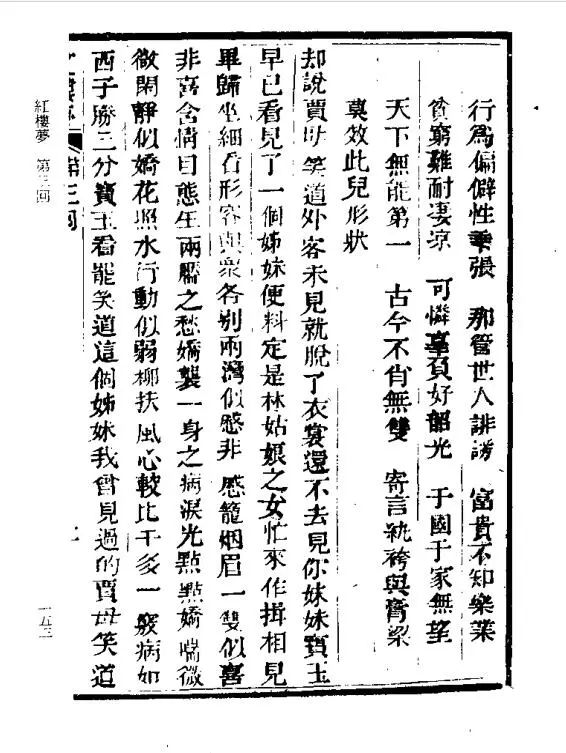 行為偏僻性乖張 那管世人誹謗 富貴不知樂業
貧窮難耐凄凉 可憐辜負好韶光 于國于家無望
天下無能第一 古今不肖無雙 寄言紈袴與膏粱
莫效此兒形狀
却說賈母笑道外客未見就脫了衣裳還不去見你妹妹寶玉
早已看見了一個姊妹便料定是林姑娘之女忙來作揖相見
畢歸坐細看形容與衆各別兩灣似慼非慼籠烟眉一雙似喜
非喜含情目態生兩靨之愁嬌襲一身之病淚光點點嬌喘微
微閑靜似嬌花照水行動似弱柳扶風心較比干多一竅病如
西子勝三分寶玉看罷笑道這個姊妹我曾見過的賈母笑道
第三回
紅樓夢 第三回
一五三